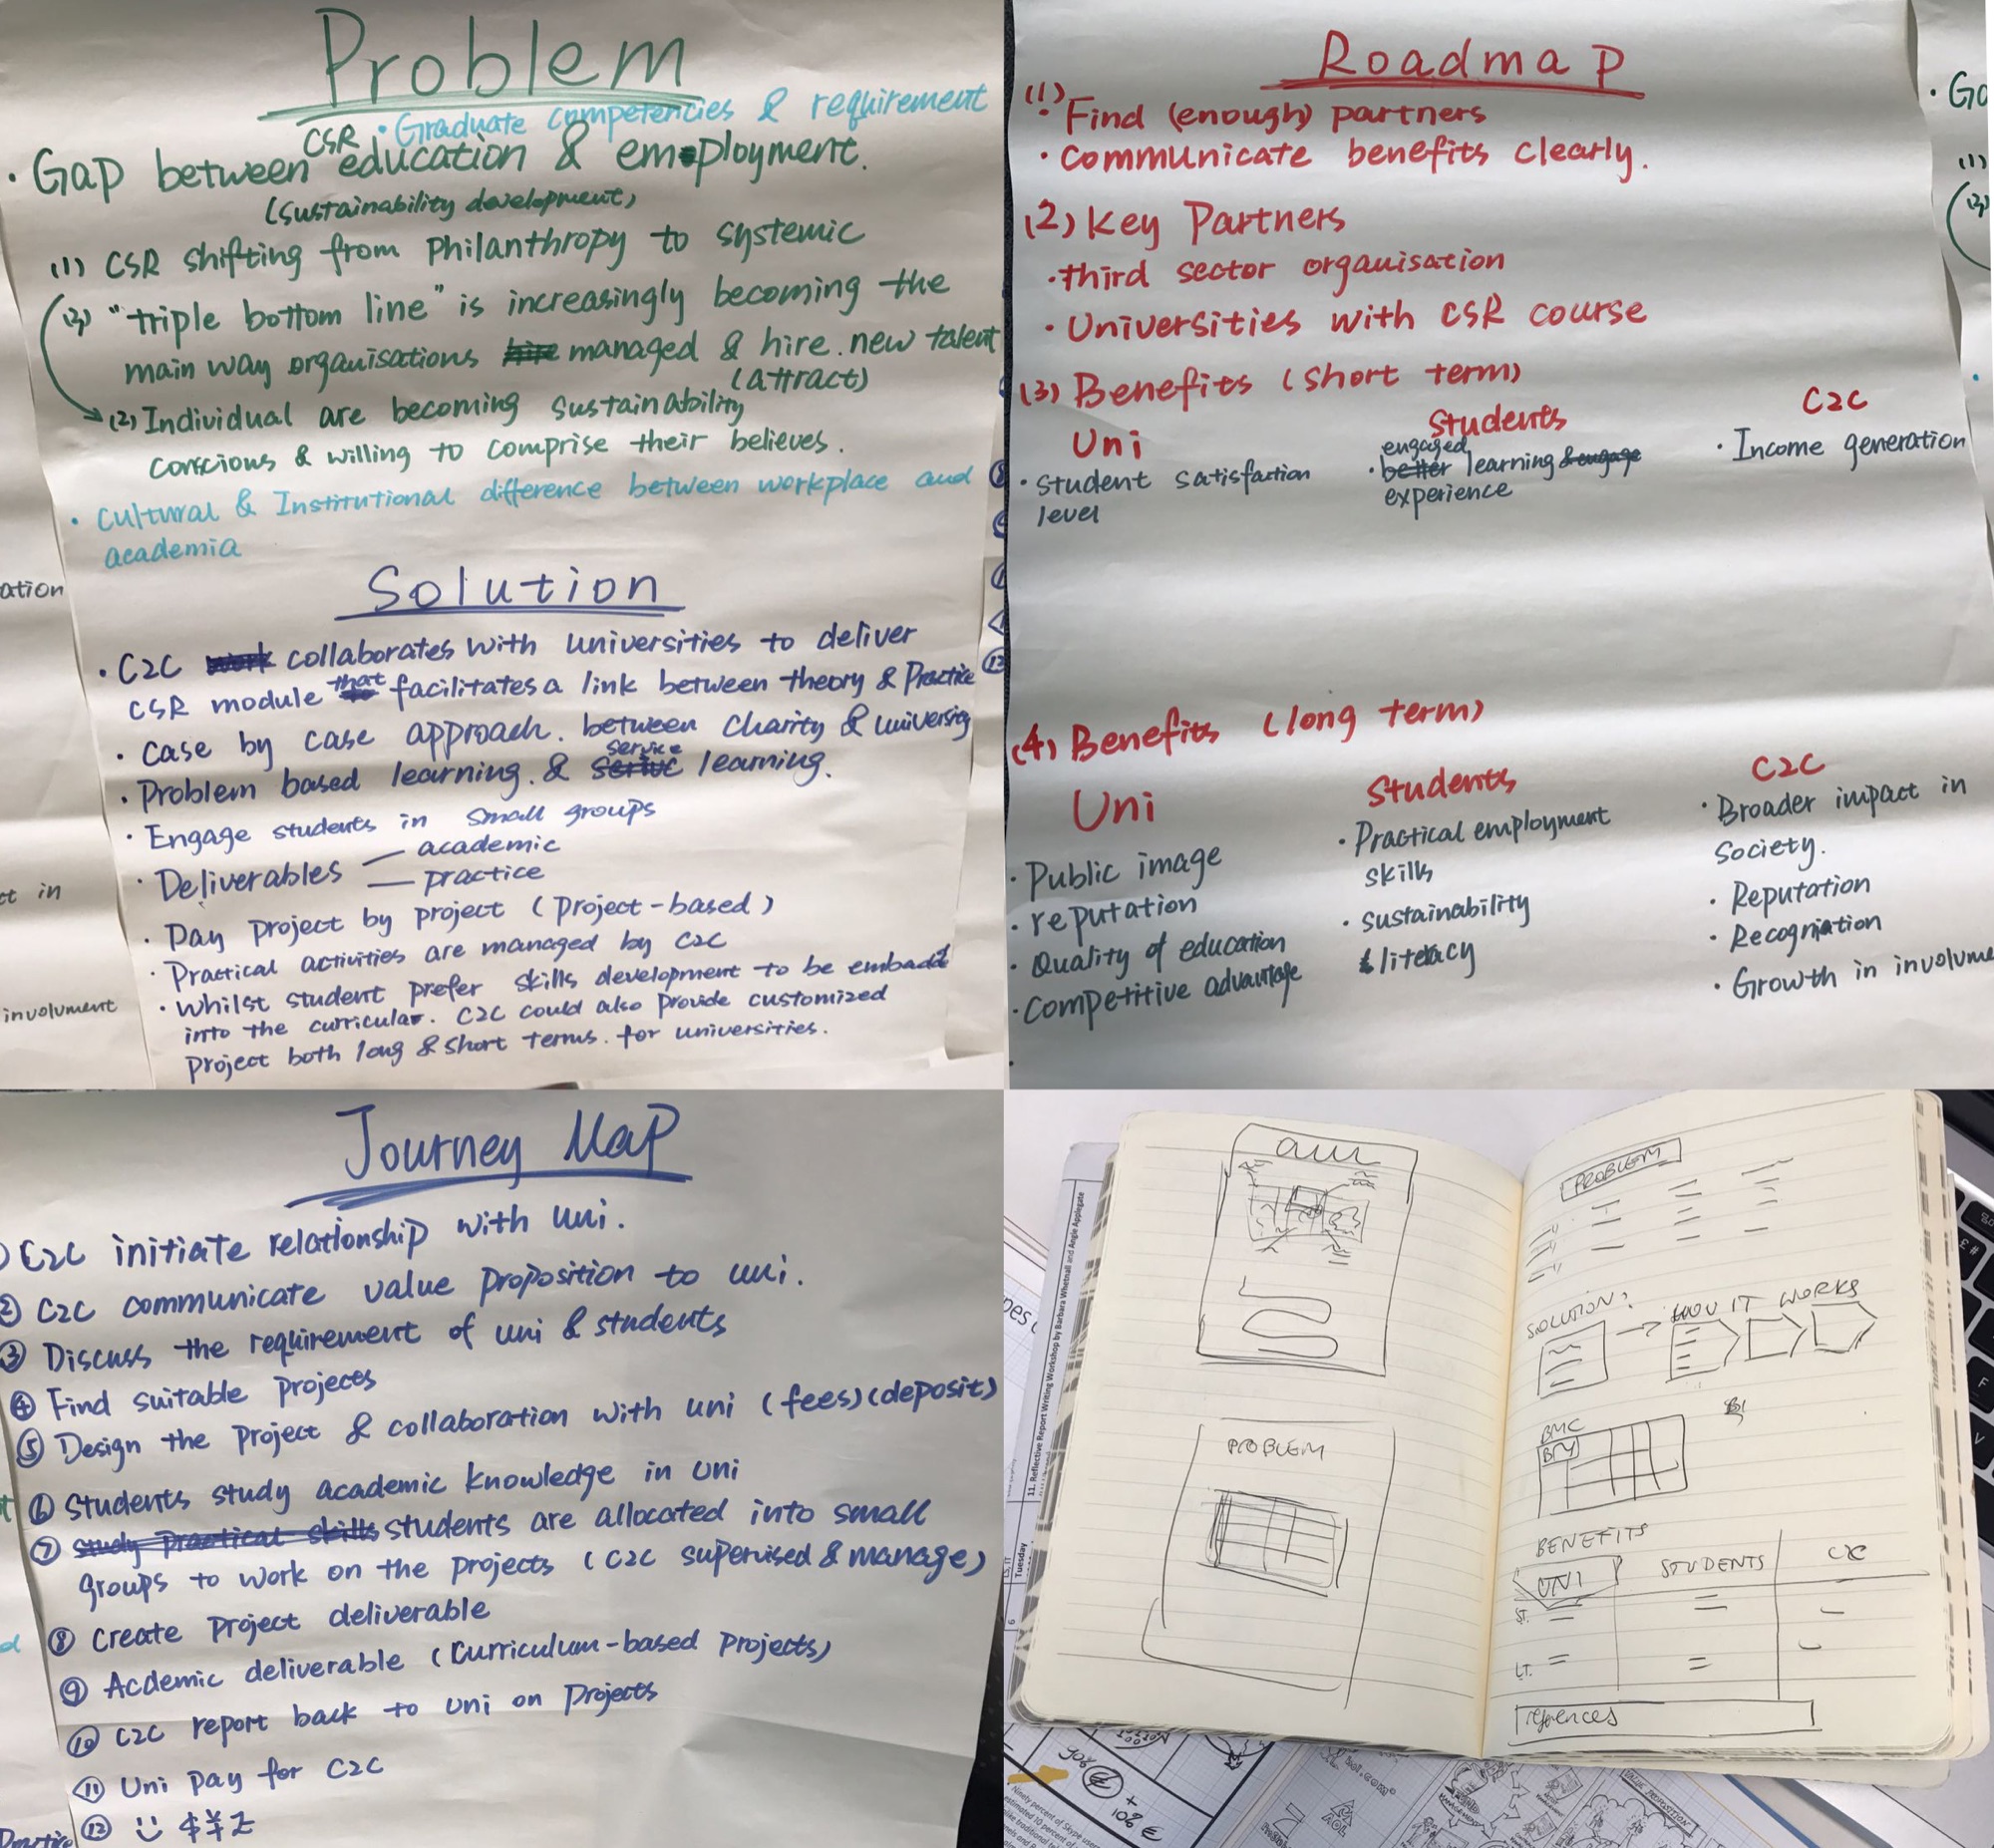 Problem
· Graduate competencies & requirement
CSR
· Gap between education & employment.
(sustainability development)
(1) CSR shifting from Philanthropy to systemic
(3) "triple bottom line" is increasingly becoming the
main way organisations managed & hire. new talent
(attract)
(2) Individual are becoming sustainability
conscious & willing to comprise their believes.
· Cultural & Institutional difference between workplace and
academia
Solution
· C2C collaborates with universities to deliver
CSR module that facilitates a link between theory & Practice
· Case by case approach. between charity & university
service
· Problem based learning. & learning.
· Engage students in small groups
· Deliverables — academic
— practice
· Pay project by project (project-based)
· Practical activities are managed by C2C
· Whilst student prefer skills development to be embadd
into the curricular. C2C could also provide customized
project both long & short terms. for universities.
ation
ct in
involument
Roadmap
(1)
· Find (enough) partners
· Communicate benefits clearly.
(2) Key Partners
· third sector organisation
· Universities with CSR course
(3) Benefits (short term)
Uni Students C2C
· student satisfaction
level
engaged
· better learning & engage
experience
· Income generation
(4) Benefits (long term)
Uni Students C2C
· Public image
· reputation
· Quality of education
· Competitive advantage
· Practical employment
skills
· sustainability
literacy
· Broader impact in
Society.
· Reputation
· Recognition
· Growth in involume
· Go
(1)
(3)
Journey Map
C2C initiate relationship with uni.
② C2C communicate value proposition to uni.
③ Discuss the requirement of uni & students
④ Find suitable projeces
⑤ Design the project & collaboration with uni (fees) (deposit)
⑥ Students study academic knowledge in uni
⑦ study practical skills students are allocated into small
groups to work on the projects (C2C supervised & manage)
⑧ Create project deliverable
⑨ Acdemic deliverable (Curriculum-based Projects)
⑩ C2C report back to uni on Projects
⑪ Uni pay for C2C
⑫
PROBLEM
PROBLEM
SOLUTION: HOW IT WORKS
BMC
BM
BENEFITS
UNI STUDENTS C2C
ST.
LT.
references
11. Reflective Report Writing Workshop by Barbara Whetnall and Angie Applegate
Tuesday
6
90% €
+
10% €
AOL
VALUE PROPOSITION